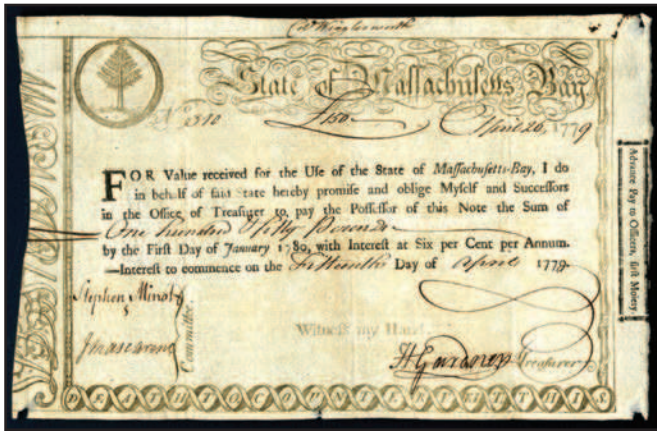 Col Wigglesworth
State of Maſsachuſetts Bay
No 1510 £150. April 20, 1779
FOR Value received for the Uſe of the State of Maſſachuſetts-Bay, I do
in behalf of ſaid State hereby promiſe and oblige Myſelf and Succeſſors
in the Office of Treaſurer to, pay the Poſſeſſor of this Note the Sum of
One hundred & fifty Pounds
by the Firſt Day of January 1780, with Intereſt at Six per Cent per Annum.
—Intereſt to commence on the Fifteenth Day of April 1779.
Stephen
Committee.
Witneſs my Hand.
HGardner Treaſurer
DEATH TO COUNTERFEIT THIS.
Advance Pay to Officers, firſt Moiety.